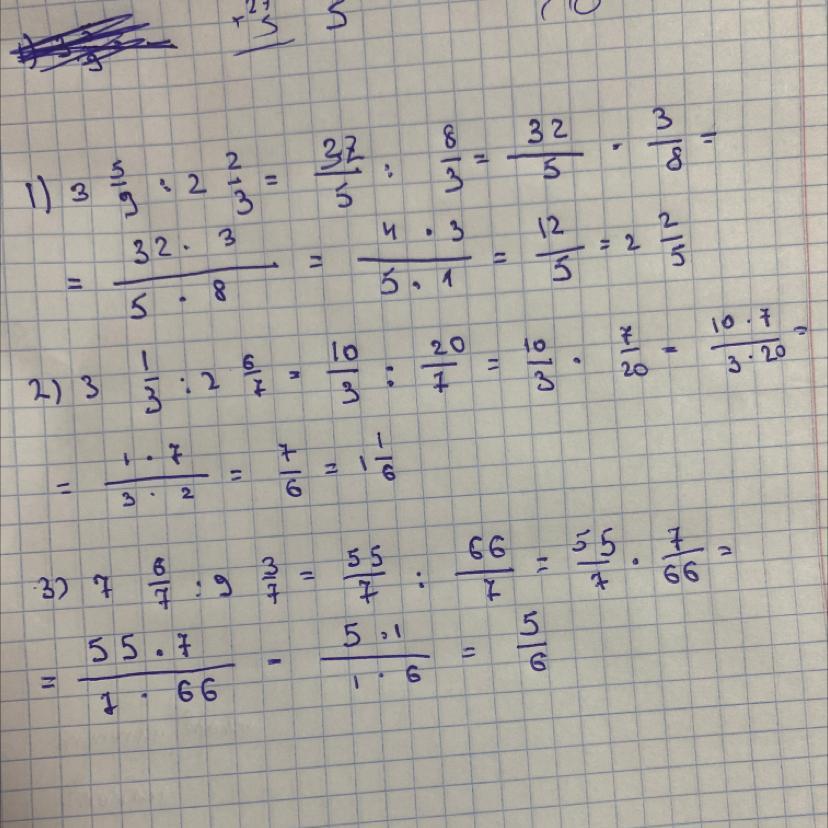 27
+5 5
1) 3 5/9 : 2 2/3 = 32/5 : 8/3 = 32/5 · 3/8 =
= 32 · 3 / 5 · 8 = 4 · 3 / 5 · 1 = 12/5 = 2 2/5
2) 3 1/3 : 2 6/7 = 10/3 : 20/7 = 10/3 · 7/20 = 10 · 7 / 3 · 20 =
= 1 · 7 / 3 · 2 = 7/6 = 1 1/6
3) 7 6/7 : 9 3/7 = 55/7 : 66/7 = 55/7 · 7/66 =
= 55 · 7 / 7 · 66 - 5 · 1 / 1 · 6 = 5/6